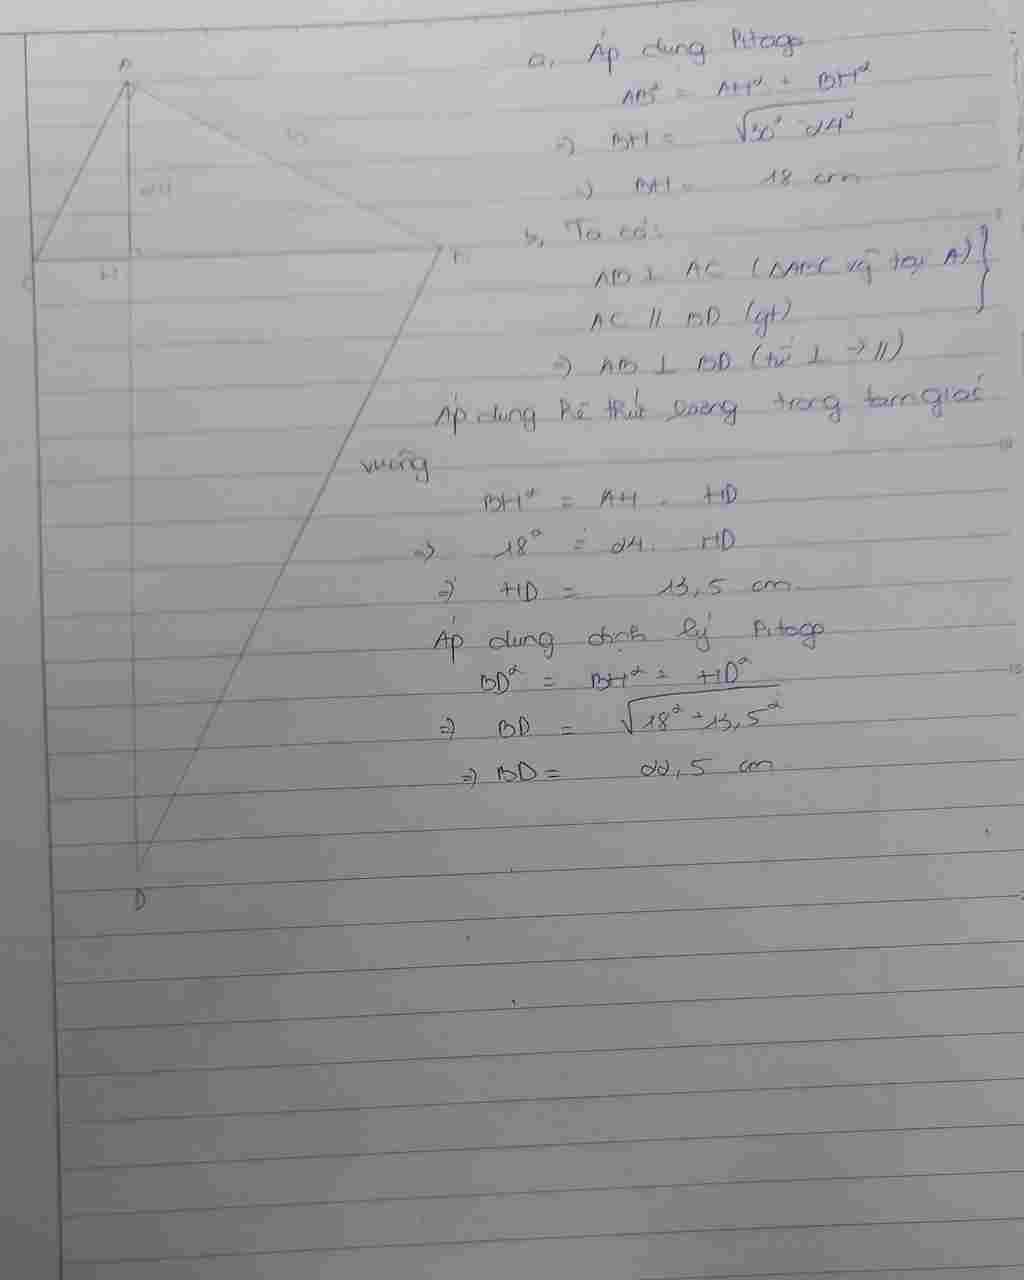 A
30
24
C
H
B
D
a, Áp dụng Pitago
AB² = AH² + BH²
=> BH = √30² - 24²
=> BH = 18 cm
b, Ta có:
AB ⊥ AC (ΔABC vg̃ tại A) }
AC // BD (gt)
=> AB ⊥ BD (từ ⊥ → //)
Áp dụng hệ thức lượng trong tam giác
vuông
BH² = AH . HD
=> 18² = 24 . HD
=> HD = 13,5 cm
Áp dụng định lý Pitago
BD² = BH² = HD²
=> BD = √18² + 13,5²
=> BD = 22,5 cm